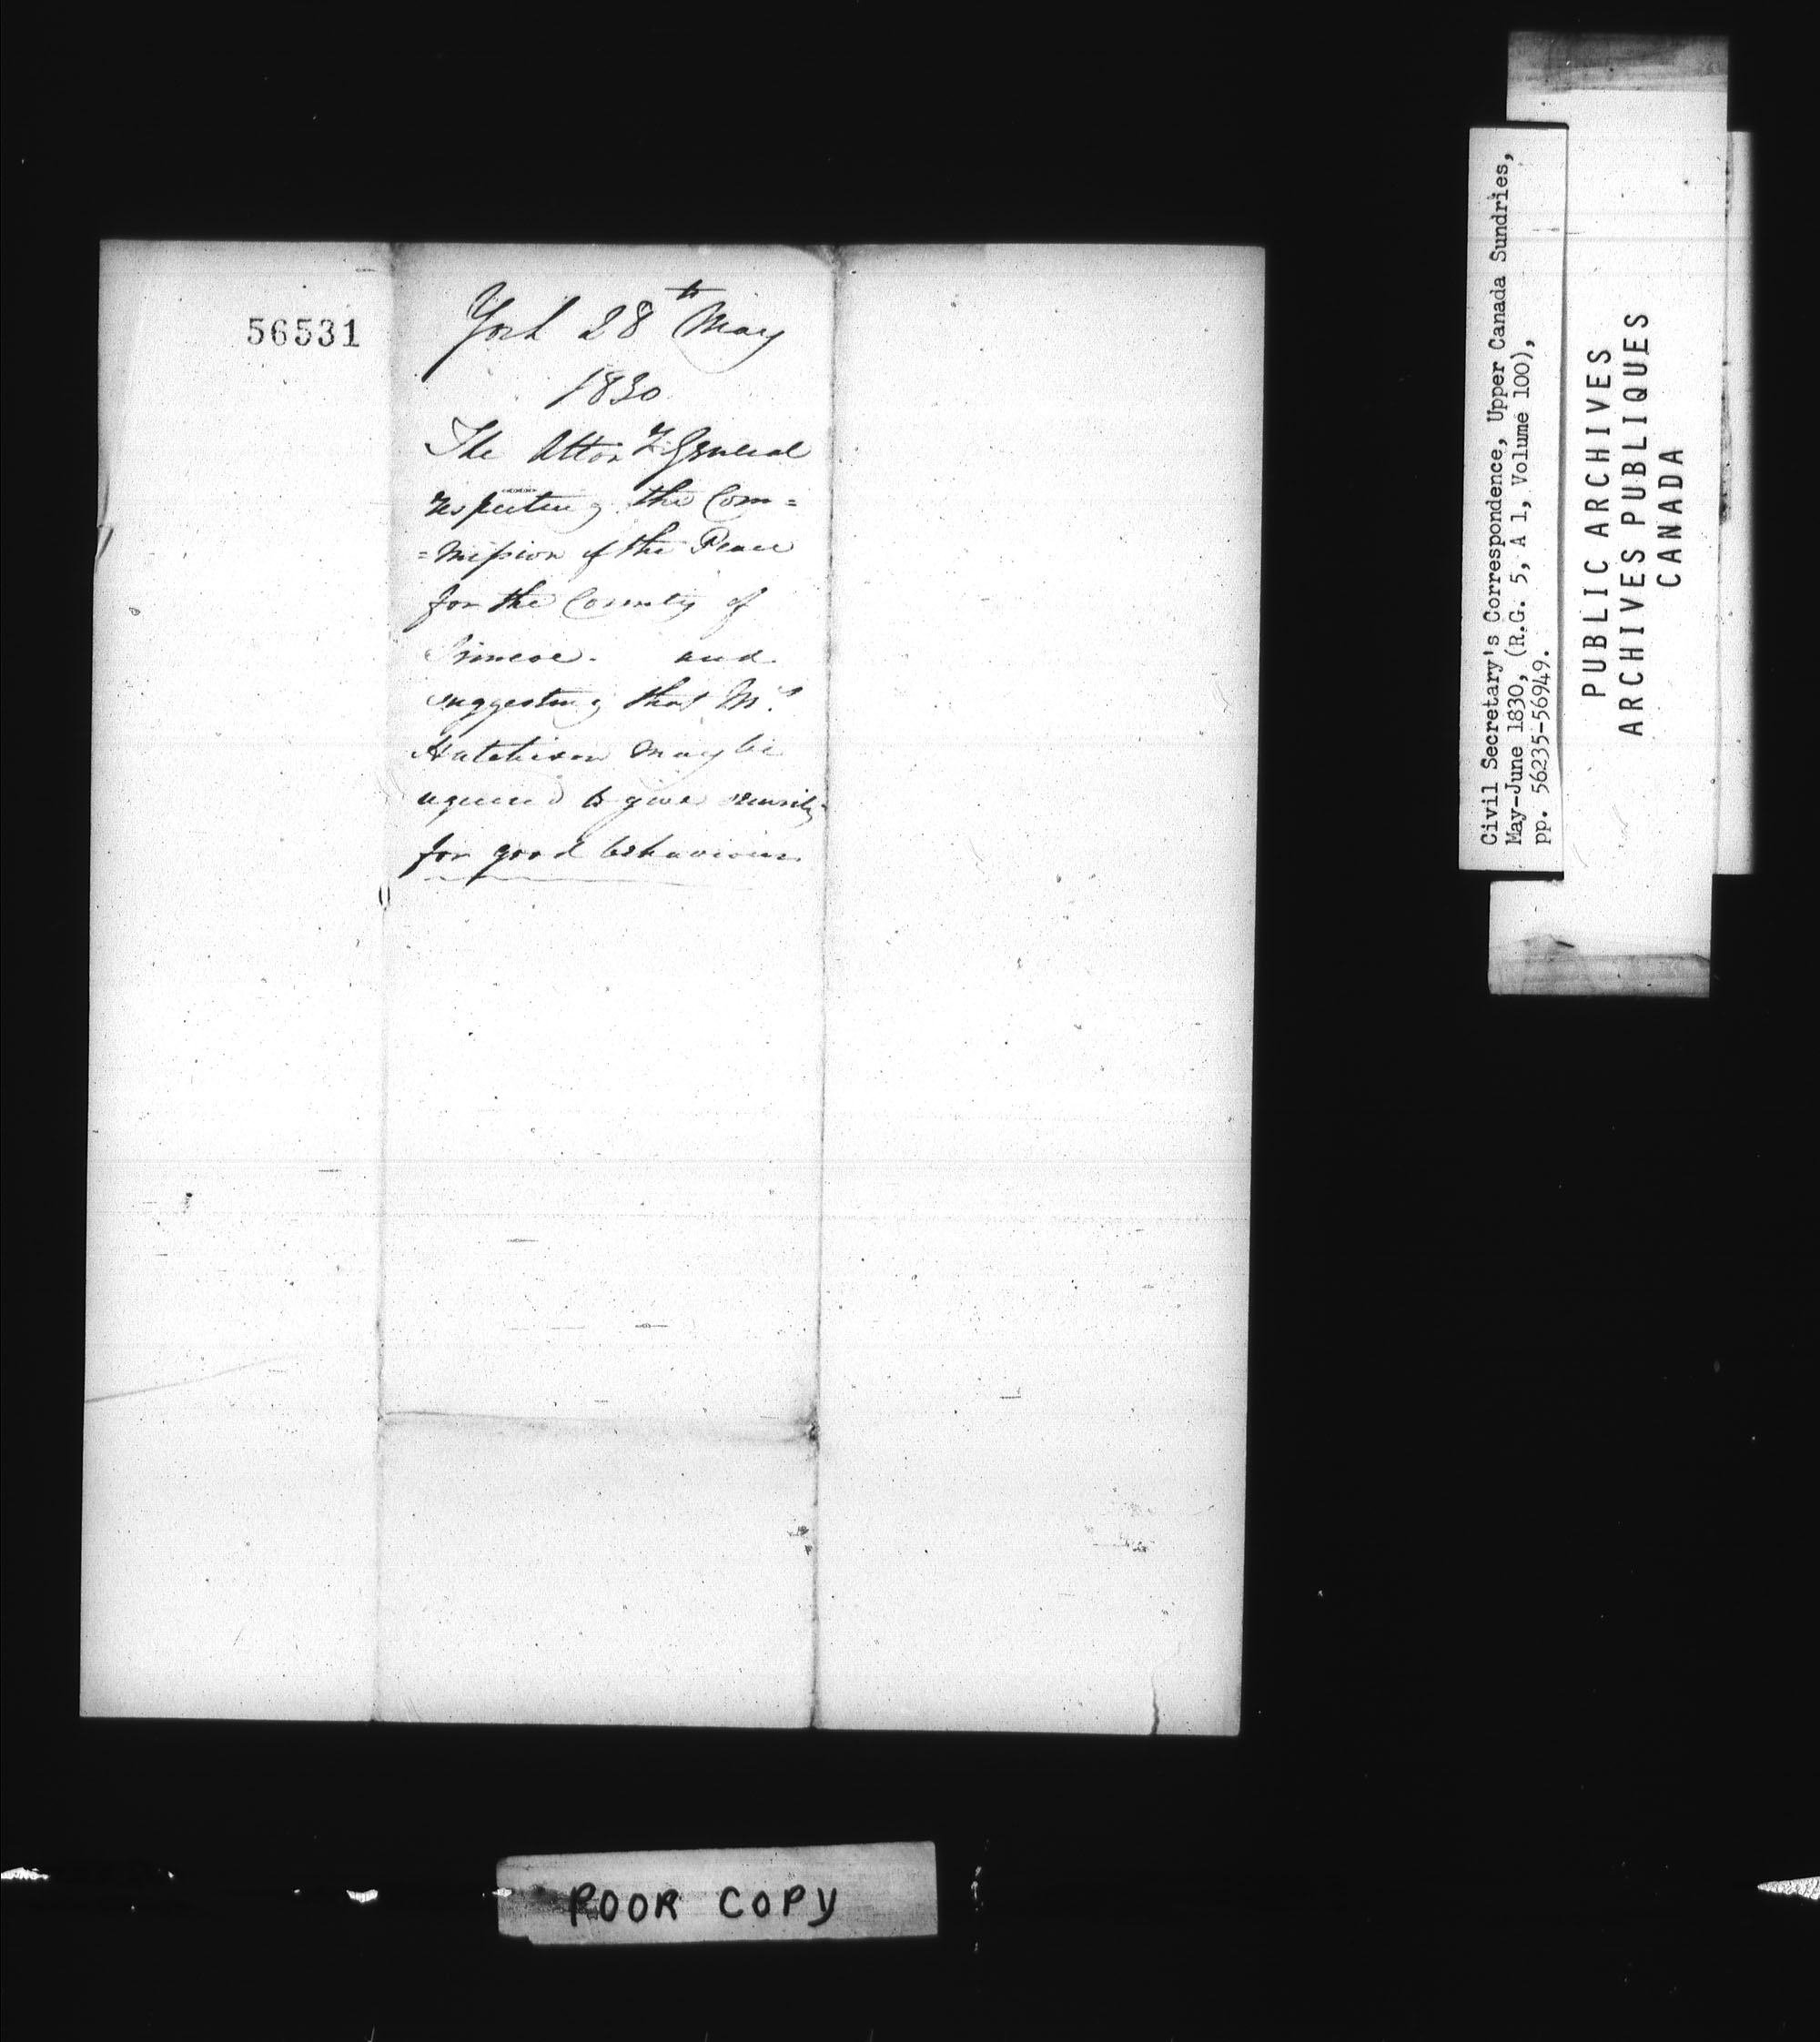 56531
York 28th May
1830
The Attory General
respecting the Com=
=mission of the Peace
for the County of
Simcoe. and
suggesting that Mr.
Hutchison may be
required to give security
for good behaviour
Civil Secretary's Correspondence, Upper Canada Sundries,
May-June 1830, (R.G. 5, A 1, Volume 100),
pp. 56235-56949.
PUBLIC ARCHIVES
ARCHIVES PUBLIQUES
CANADA
POOR COPY